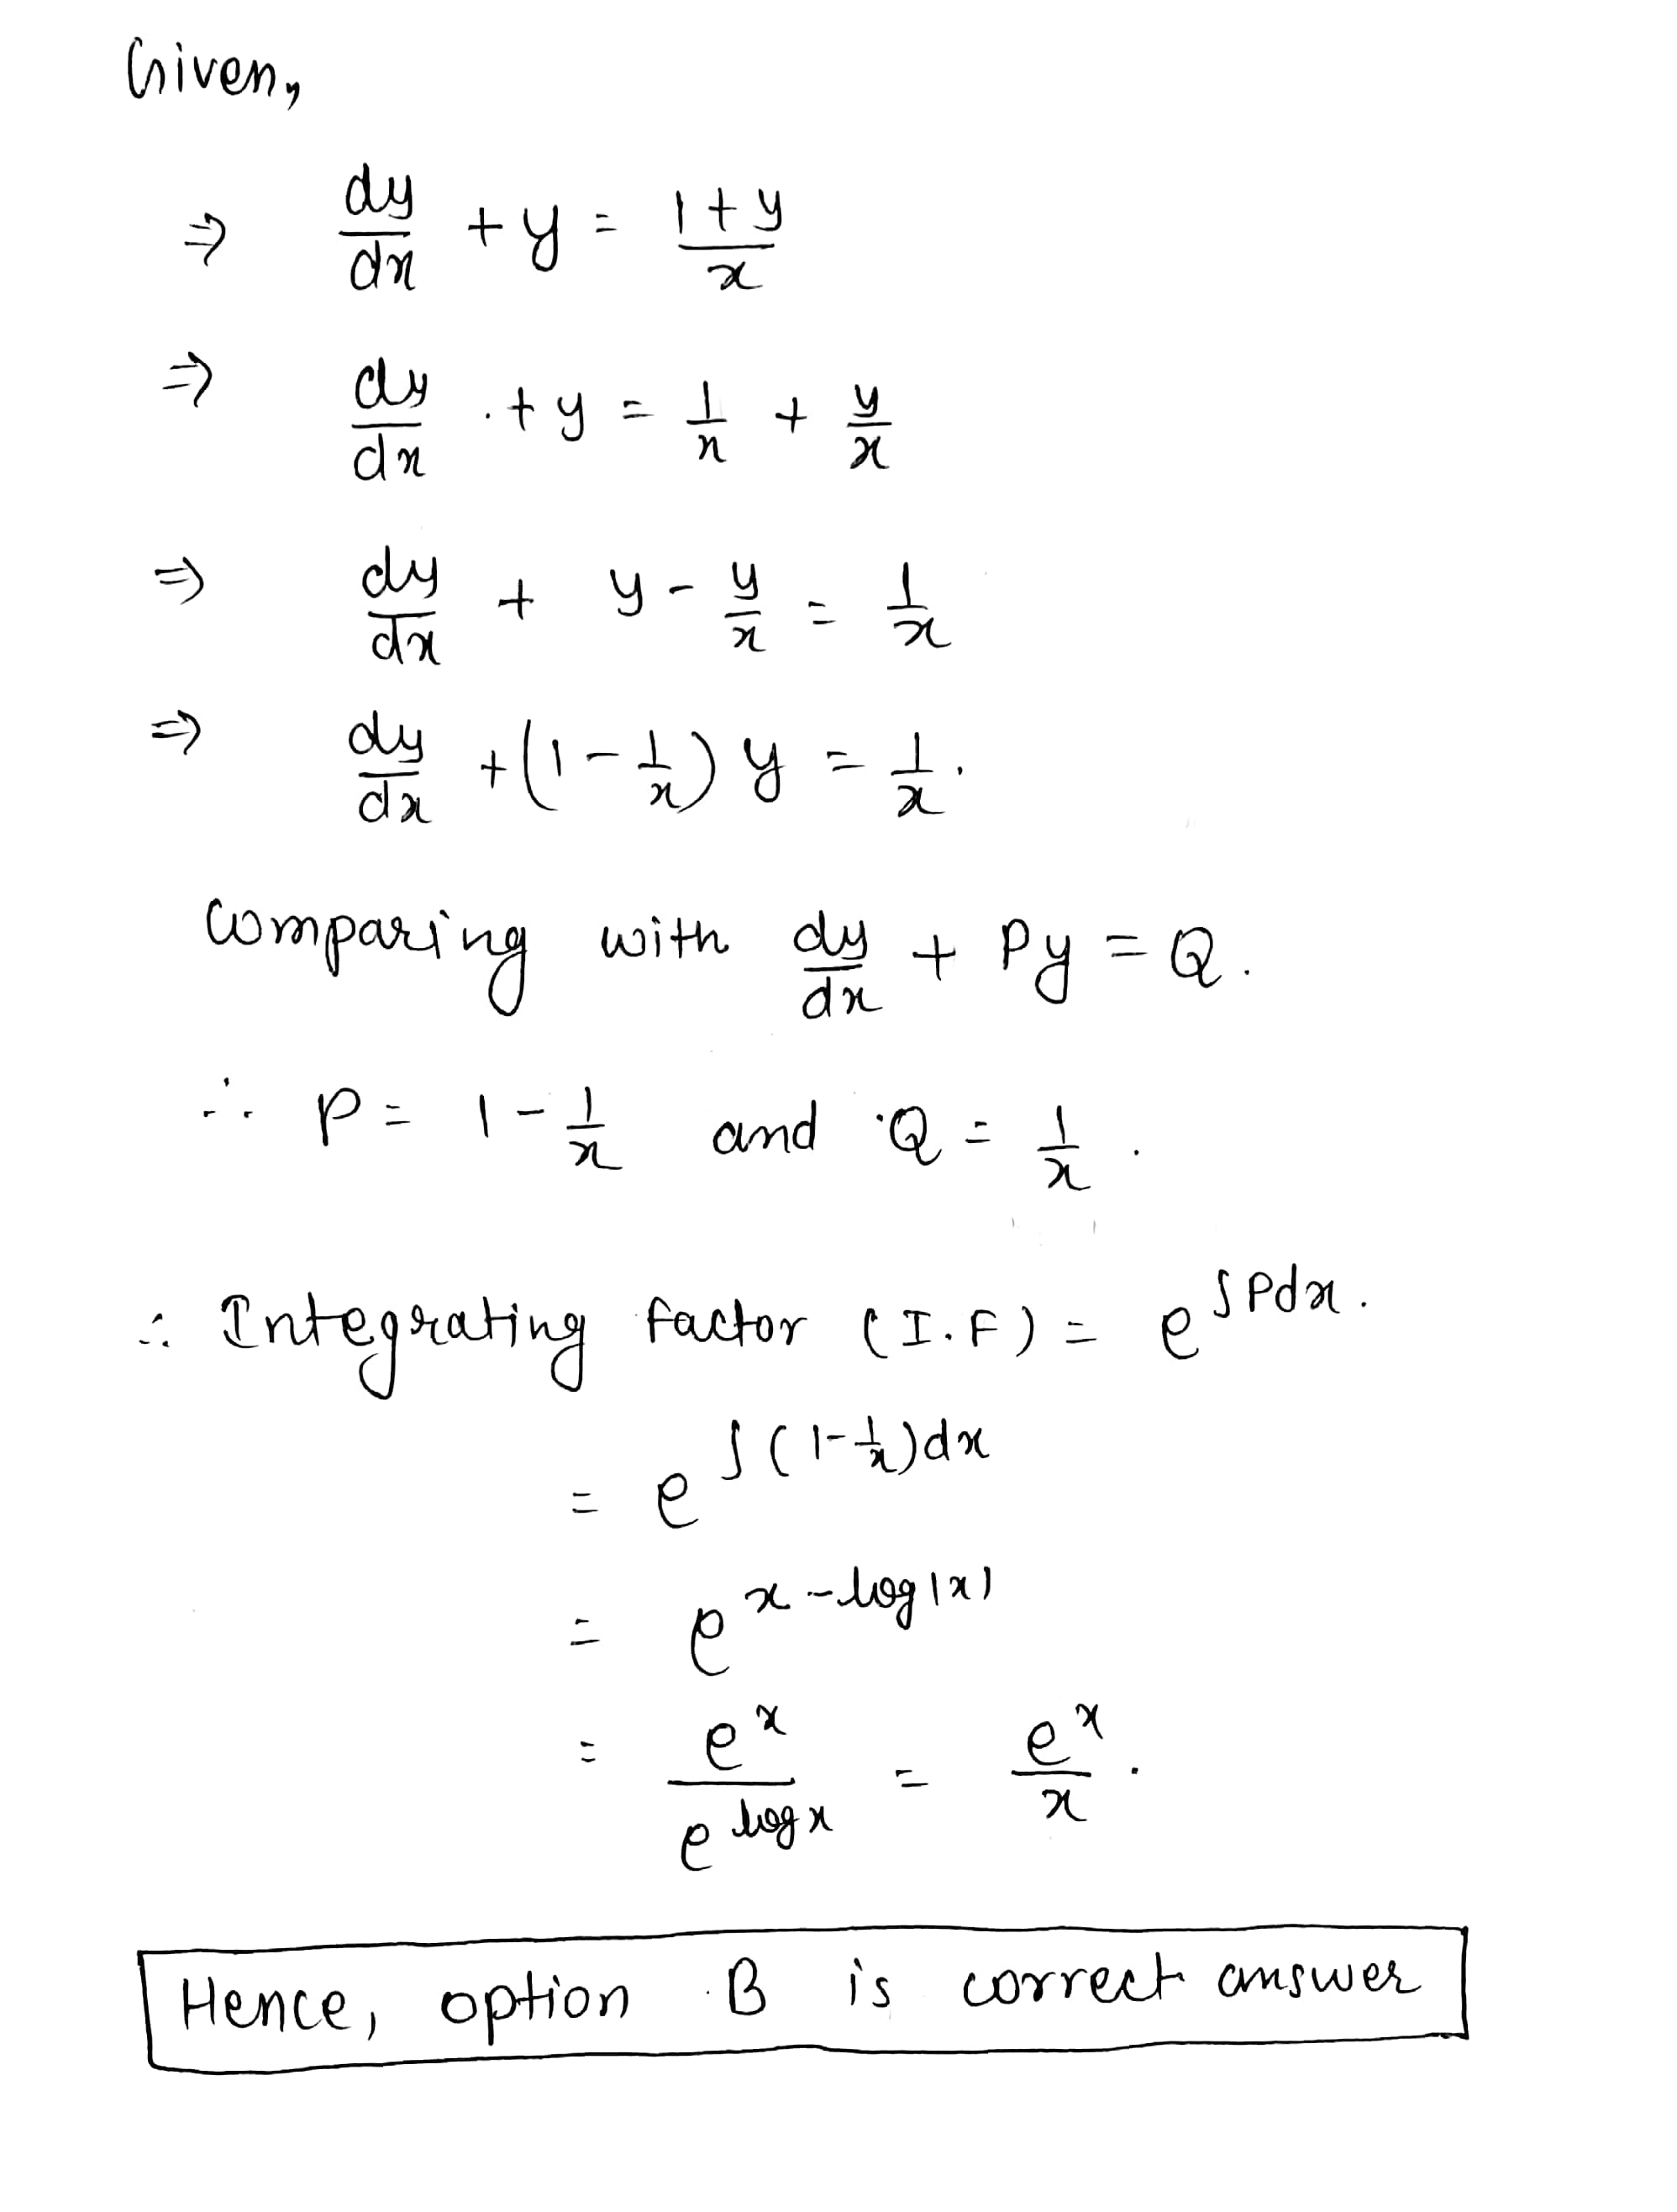 Given,
⇒ dy/dx + y = (1+y)/x
⇒ dy/dx + y = 1/x + y/x
⇒ dy/dx + y - y/x = 1/x
⇒ dy/dx + (1 - 1/x) y = 1/x.
Comparing with dy/dx + Py = Q.
∴ P = 1 - 1/x and Q = 1/x.
∴ Integrating factor (I.F) = e^∫Pdx.
= e^∫(1-1/x)dx
= e^(x-log|x|)
= e^x/e^(log x) = e^x/x.
Hence, option B is correct answer